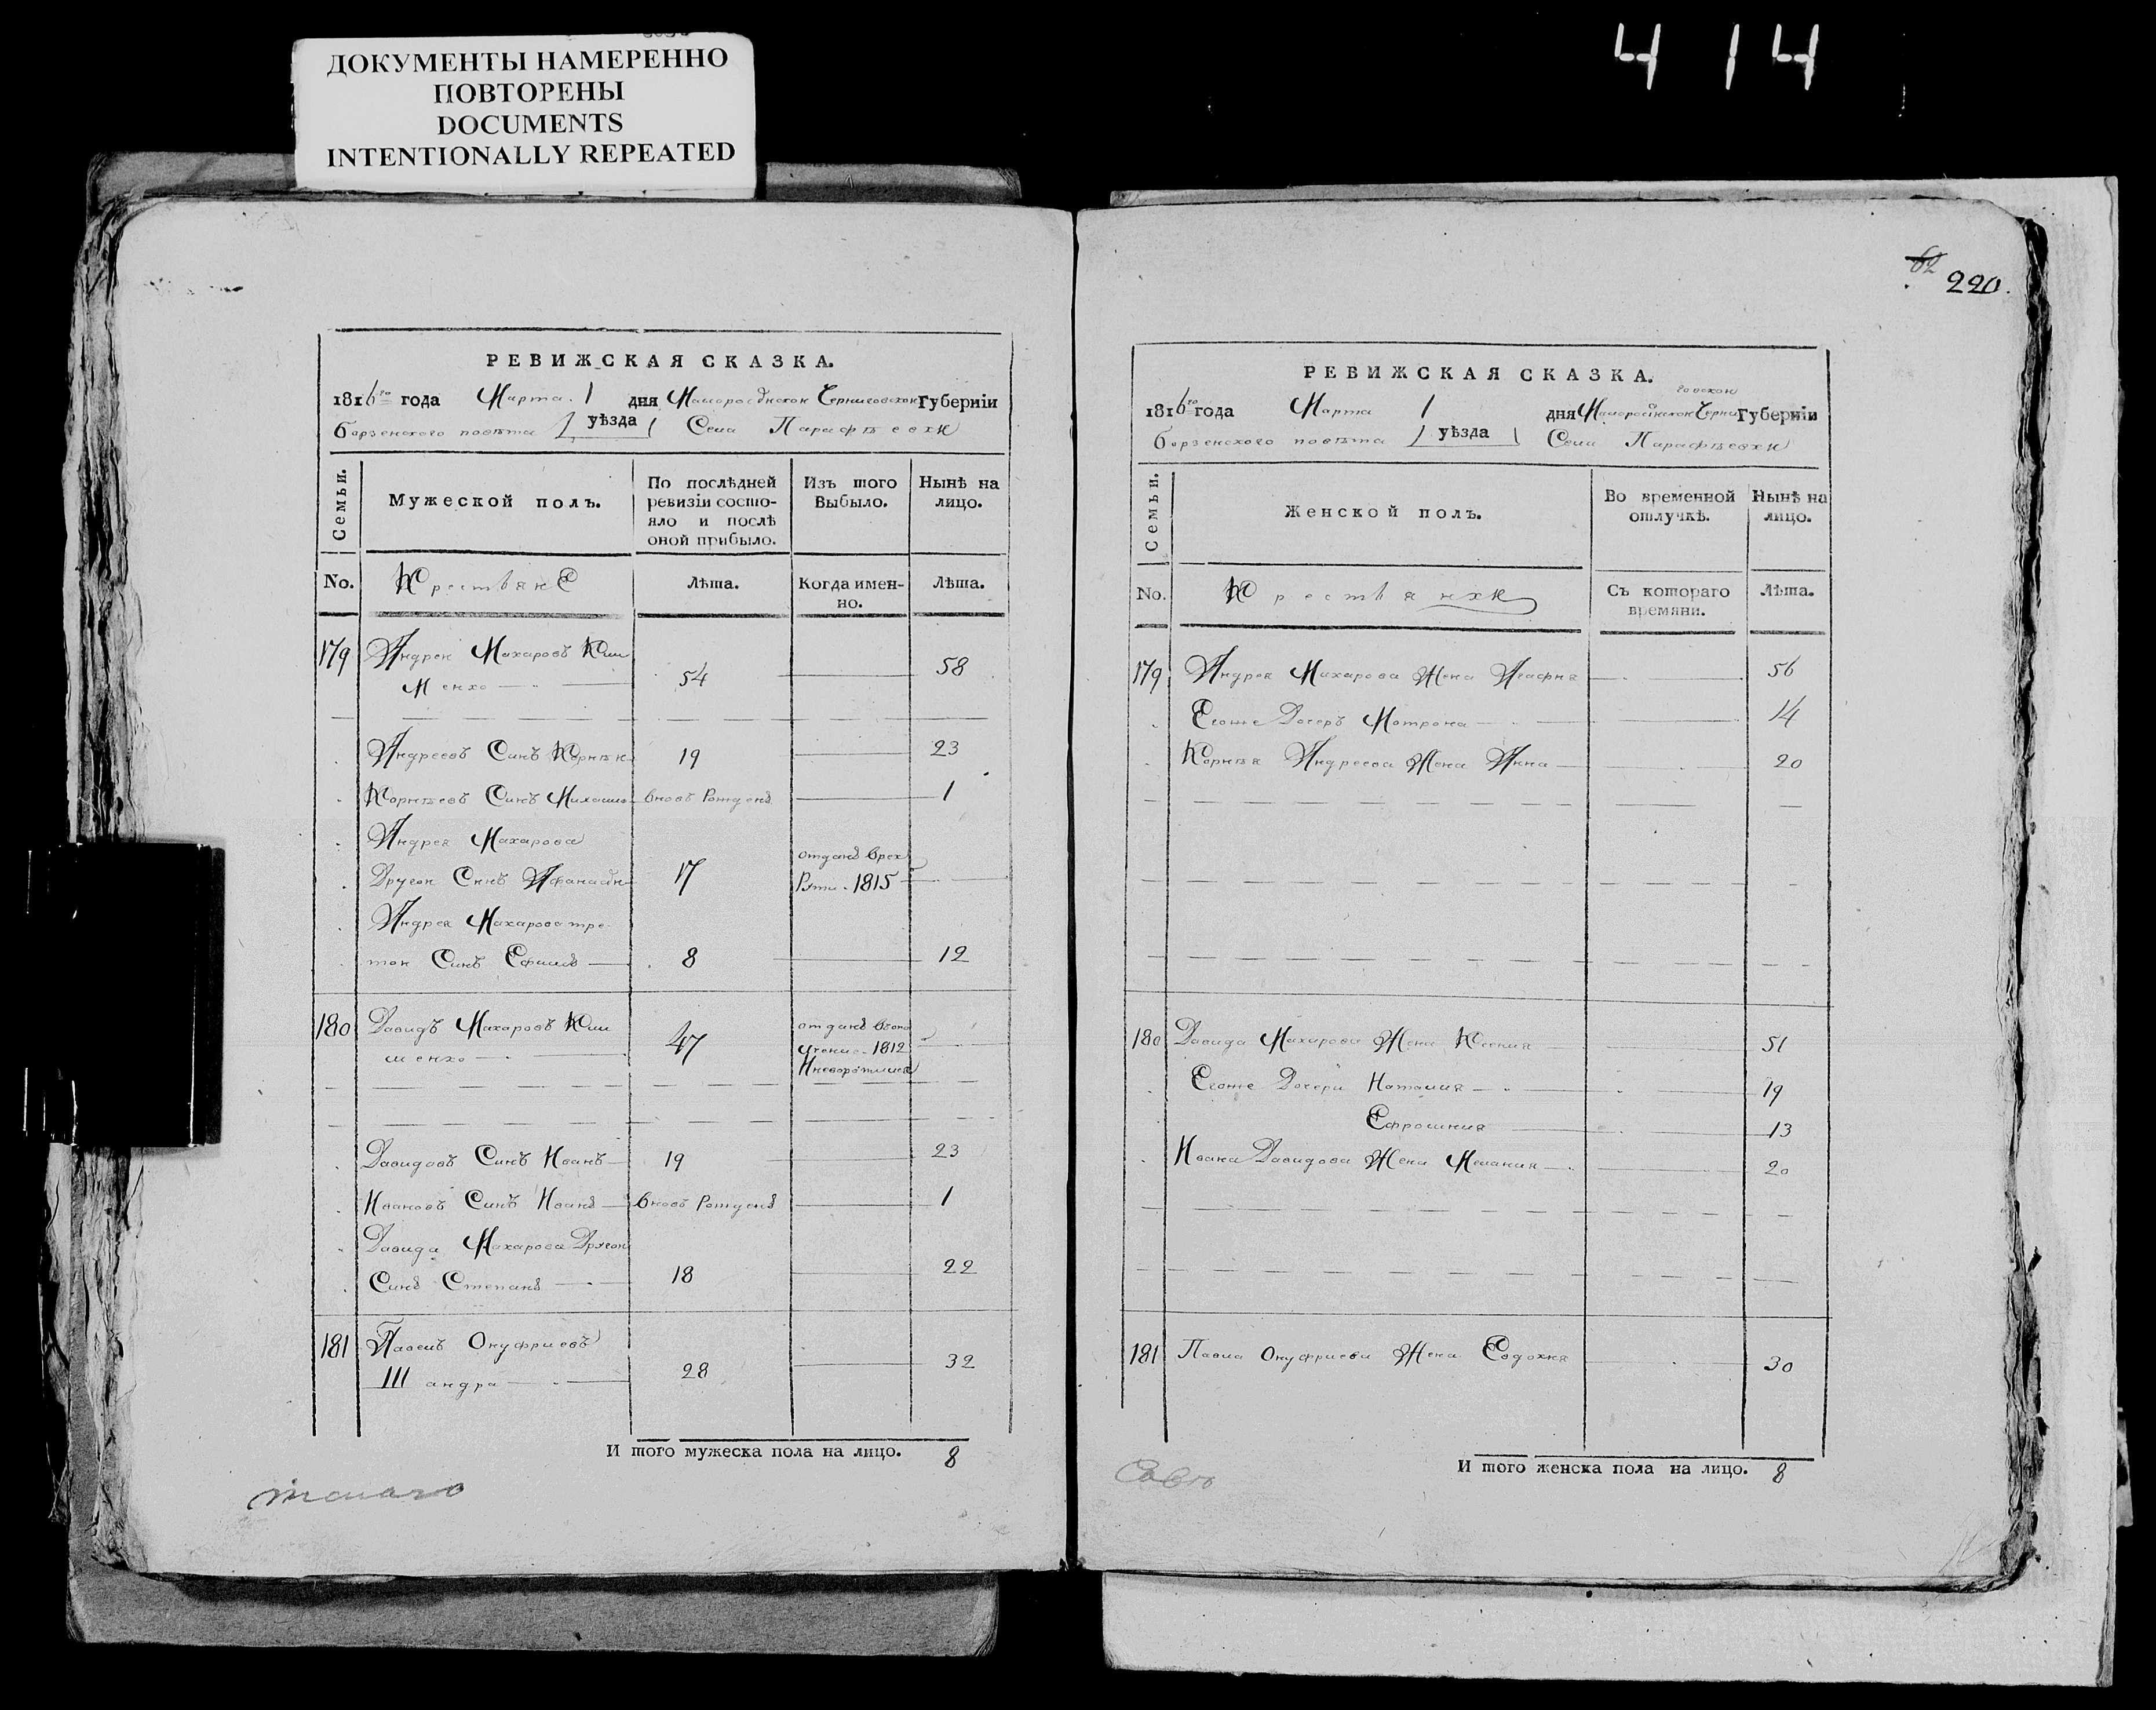 4 14
ДОКУМЕНТЫ НАМЕРЕННО
ПОВТОРЕНЫ
DOCUMENTS
INTENTIONALLY REPEATED
РЕВИЖСКАЯ СКАЗКА.
1816го года Марта 1 дня Малоросійской Черниговской Губерніи
борзенского повѣта уѣзда Села Парафѣевки
Семьи.
Мужеской полъ.
По послѣдней
ревизіи состо-
яло и послѣ
оной прибыло.
Изъ того
Выбыло.
Нынѣ на
лицо.
No. Крестьяне Лѣта. Когда имен-
но. Лѣта.
179 Андрей Макаровъ Кли
менко 54 58
Андреевъ Синъ Корнѣй 19 23
Корнѣевъ Синъ Михаило вновь Рожденъ 1
Андрея Макарова
Другой Синъ Афанасій 17 отданъ врек
Руты 1815
Андрея Макарова тре-
той Синъ Ефимъ 8 12
180 Давидъ Макаровъ Кли
менко 47 отданъ вопо
лчение 1812
Иневоротился
Давидовъ Синъ Иванъ 19 23
Ивановъ Синъ Иванъ вновь Рожденъ 1
Давида Макарова Другой
Синъ Степанъ 18 22
181 Павелъ Онуфриевъ
Шандра 28 32
И того мужеска пола на лицо. 8
62
220.
РЕВИЖСКАЯ СКАЗКА.
говской
1816го года Марта 1 дня Малоросійской Черни Губерніи
борзенского повѣта уѣзда Села Парафѣевки
Семьи.
Женской полъ.
Во временной
отлучкѣ.
Нынѣ на
лицо.
No. Крестьянки Съ котораго
времяни. Лѣта.
179 Андрея Макарова Жена Агафия 56
Егоже Дочеръ Мотрона 14
Корнѣя Андреева Жена Анна 20
180 Давида Макарова Жена Ксения 51
Егоже Дочери Наталия 19
Ефросиния 13
Ивана Давидова Жена Мелания 20
181 Павла Онуфриева Жена Евдокия 30
И того женска пола на лицо. 8